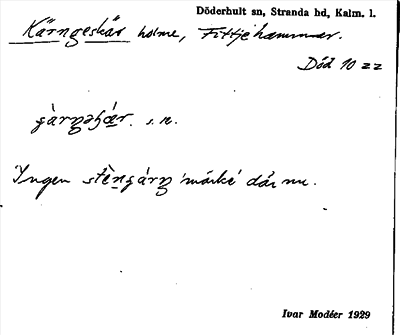 Döderhult sn, Stranda hd, Kalm. l.
Kärngeskär holme, Fittjehammar.
Död 10 zz
s. n.
Ingen märke där nu.
Ivar Modéer 1929